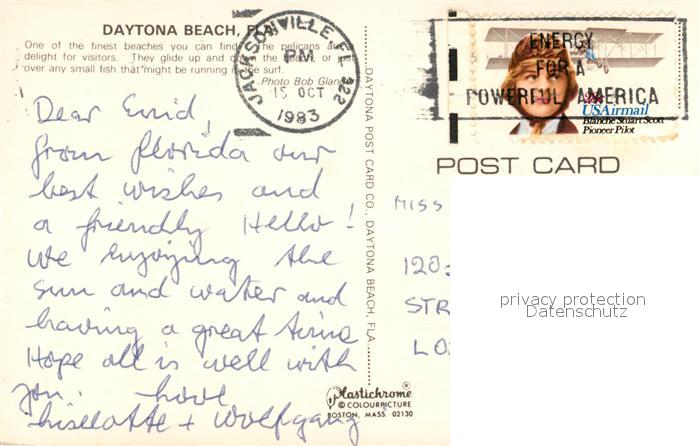 DAYTONA BEACH, FLA.
One of the finest beaches you can find. The pelicans are
delight for visitors. They glide up and down the beach, or
over any small fish that might be running in the surf.
Photo Bob Glan
JACKSONVILLE FL 322
PM
15 OCT
1983
ENERGY
FOR A
POWERFUL AMERICA
USAirmail
Blanche Stuart Scott
Pioneer Pilot
POST CARD
Dear Enid,
from florida our
best wishes and
a friendly Hello!
we enjoying the
sun and water and
having a great time
Hope all is well with
you. love
Liselotte + Wolfgang
DAYTONA POST CARD CO., DAYTONA BEACH, FLA.
MISS
120
STR
LO
privacy protection
Datenschutz
Plastichrome®
© COLOURPICTURE
BOSTON, MASS. 02130